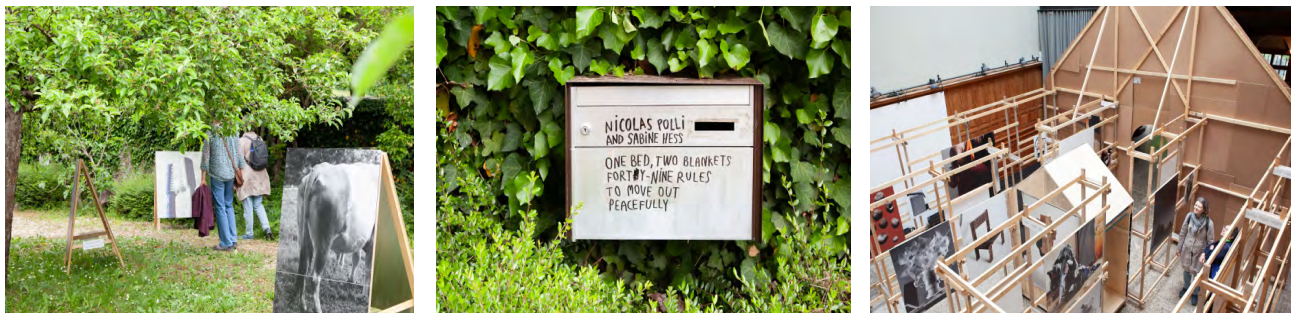 NICOLAS POLLI
AND SABINE HESS
ONE BED, TWO BLANKETS
FORTY-NINE RULES
TO MOVE OUT
PEACEFULLY